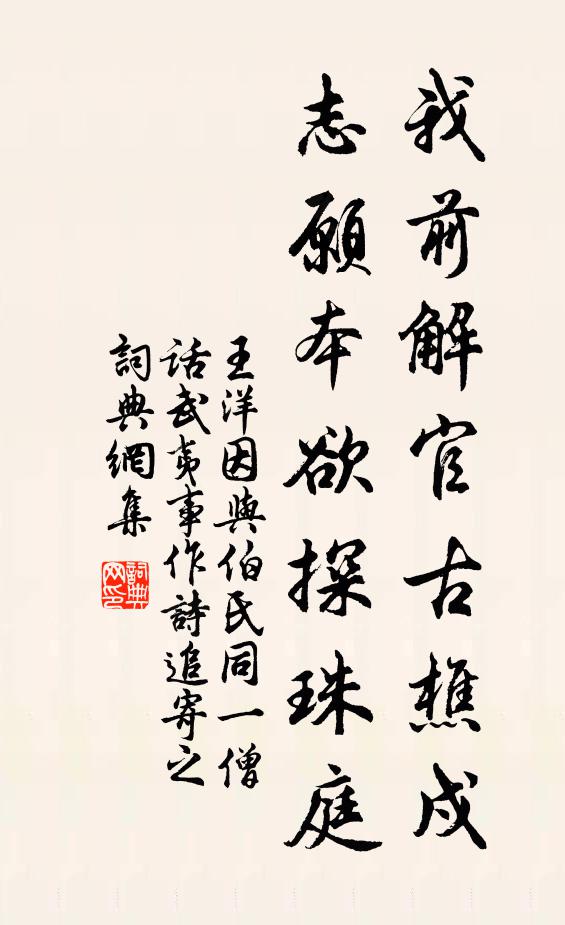 我前解官古樵戍
志願本欲探珠庭
王洋因與伯氏同一僧
话武夷事作詩追寄之
詞典網集
詞典网印